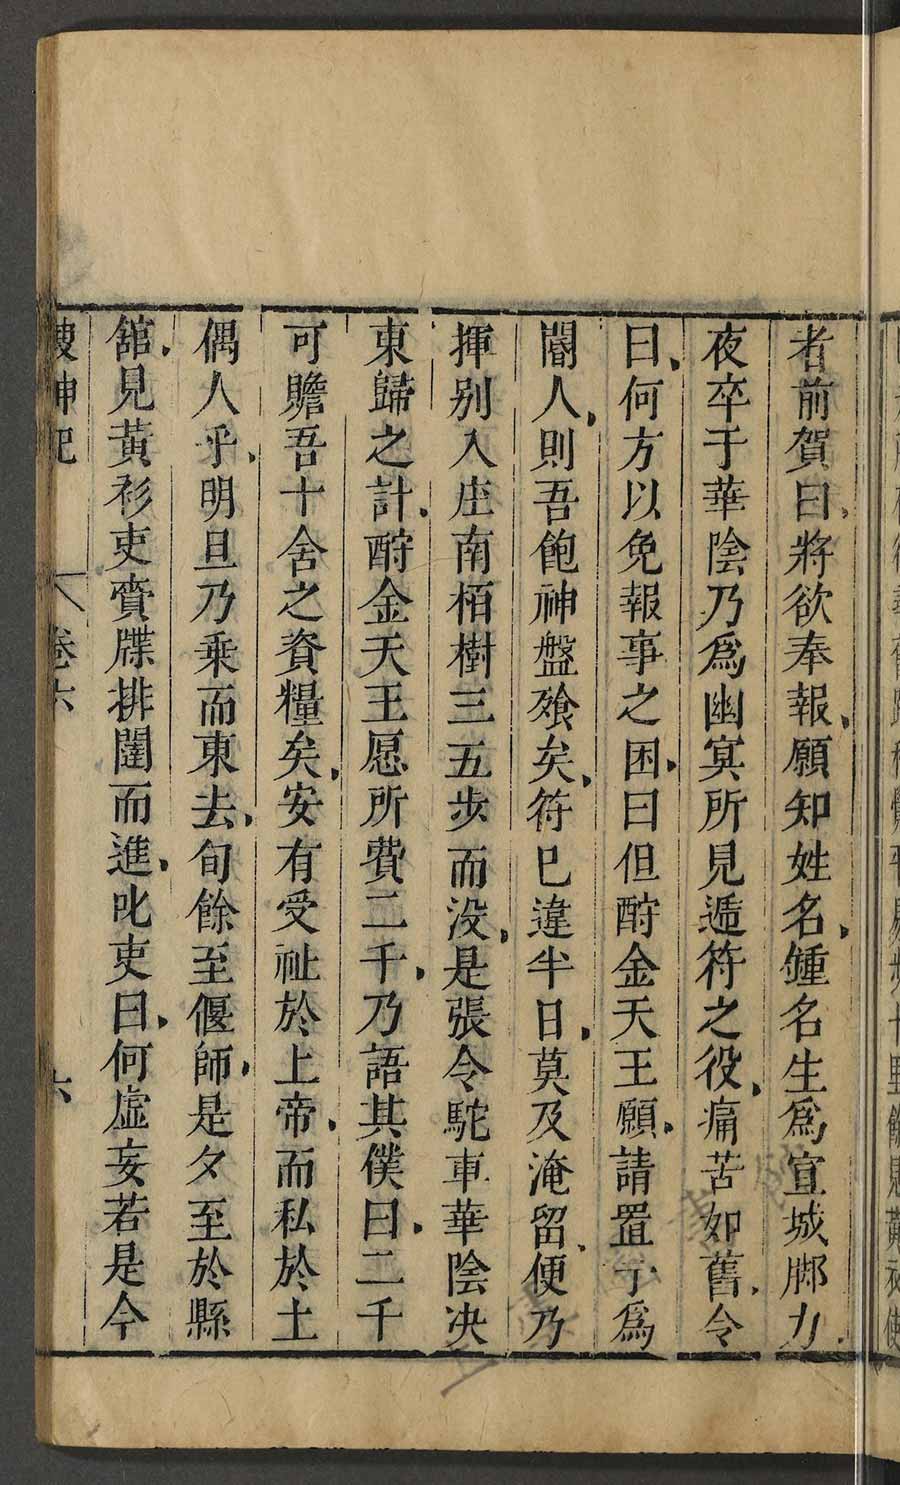 者前賀曰將欲奉報願知姓名鍾名生爲宣城脚力
夜卒于華陰乃爲幽冥所見遞符之役痛苦如舊令
曰何方以免報事之困曰但酧金天王願請置予爲
閽人則吾飽神盤飧矣符已違半日莫及淹留便乃
揮别入庄南栢樹三五步而没是張令駝車華陰决
東歸之計酧金天王愿所費二千乃語其僕曰二千
可贍吾十舍之資糧矣安有受祉於上帝而私於土
偶人乎明旦乃乘而東去旬餘至偃師是夕至於縣
舘見黃衫吏賫牒排闥而進叱吏曰何虛妄若是今
搜神記 卷六 六